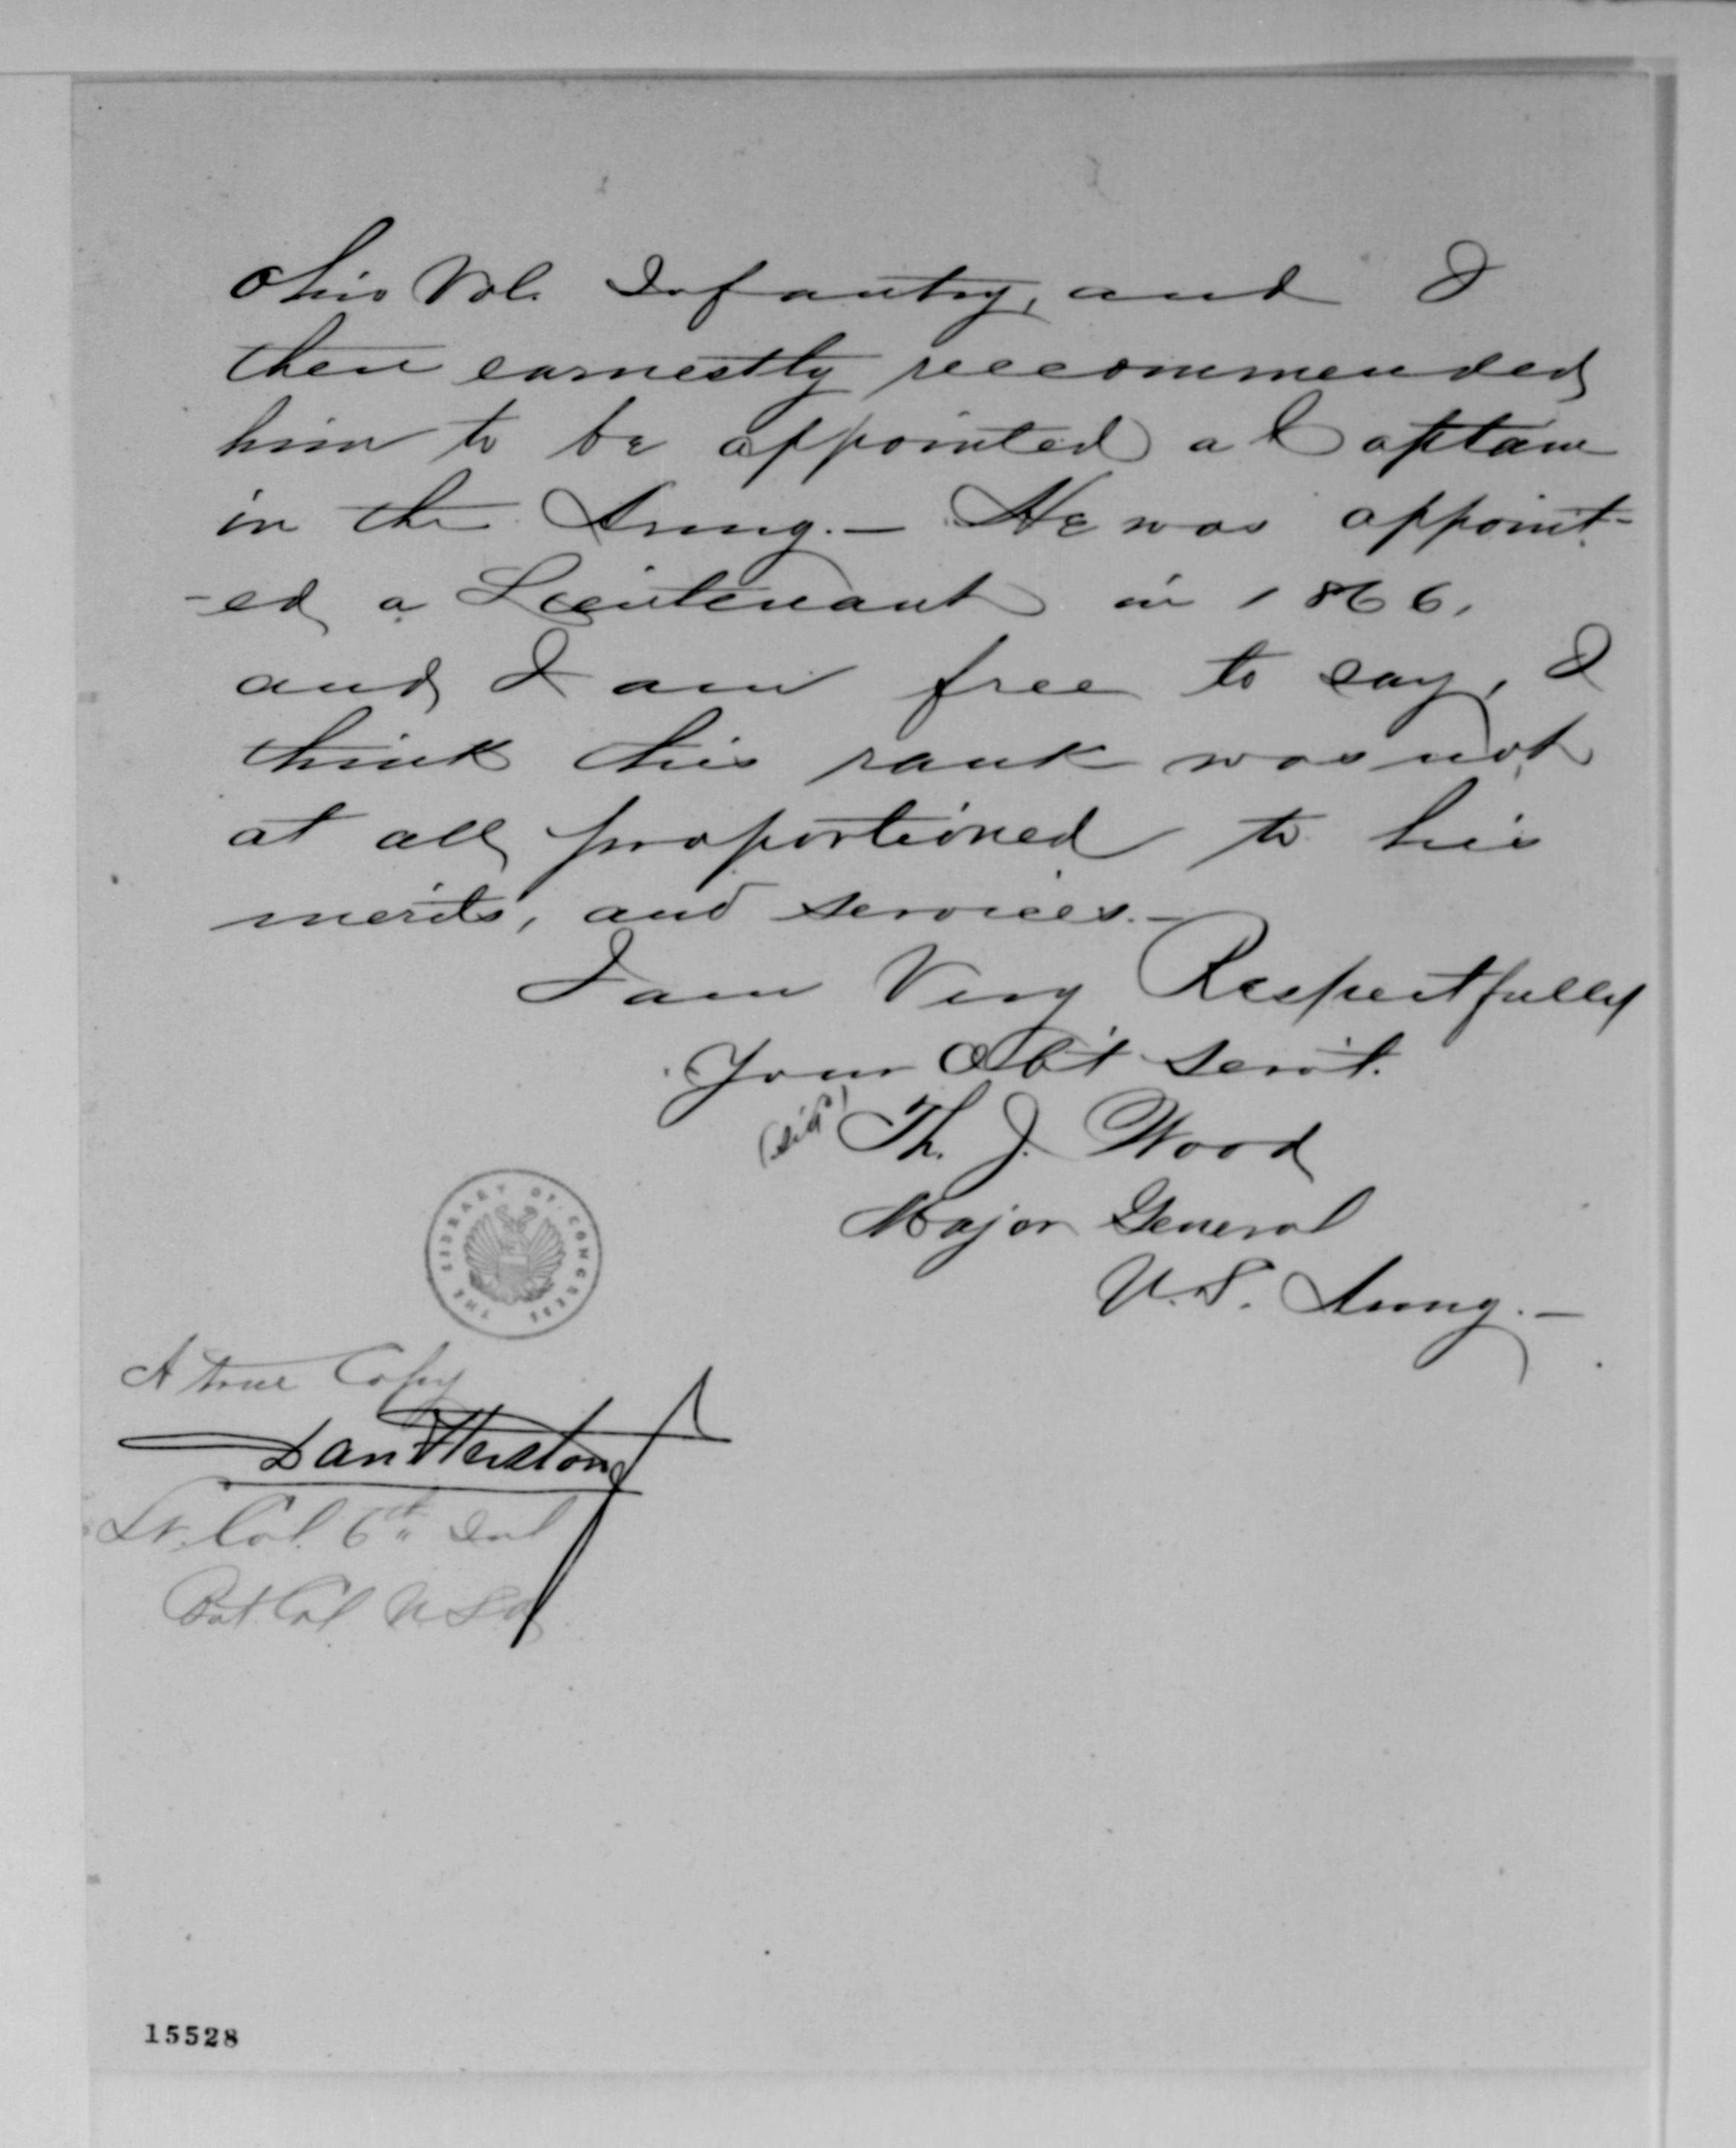 Ohio Vol. Infantry, and I
then earnestly reccommended
him to be appointed a Captain
in the Army. – He was appoint-
-ed a Lieutenant in 1866,
and I am free to say, I
think this rank was not
at all proportioned to his
merits, and services. –
I am Very Respectfully
Your Obt servt.
(sigd) Th. J. Wood
Major General
U.S. Army. –
THE LIBRARY OF CONGRESS
A true Copy
Dan Huston Jr
Lt. Col. 6th Inf
Bvt. Col U S A
15528